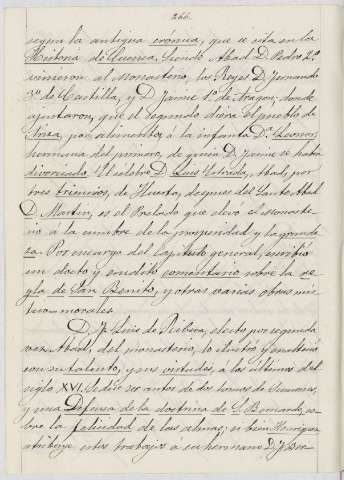 266.
segun la antigua crónica, que se cita en la
Historia de Cuenca. Siendo Abad D. Pedro 2º
vinieron al Monasterio, los Reyes D. Fernando
3º de Castilla, y D. Jaime 1º de Aragon; donde
ajustaron, que el segundo diera el pueblo de
Ariza, por alimentos, á la infanta Dª Leonor,
hermana del primero, de quien D. Jaime se había
divorciado. El célebre D. Luis Estrada, Abad, por
tres trienios, de Huerta, despues del Santo Abad
D. Martin, es el Prelado que elevó el monaste-
rio á la cumbre de la prosperidad y la grande-
za. Por encargo del Capítulo general, escribió
un docto y erudito comentario sobre la re-
gla de San Benito, y otras varias obras mís-
tico-morales.
D. F. Luis de Ribera, electo por segunda
vez Abad, del monasterio, lo ilustró y enalteció
con su talento, y sus virtudes, á los últimos del
siglo XVI. Se dice ser autor de dos tomos de Sermones,
y una Defensa de la doctrina de S. Bernardo, so-
bre la felicidad de las almas; si bien Henriquez
atribuye estos trabajos á su hermano D. F. Ber-